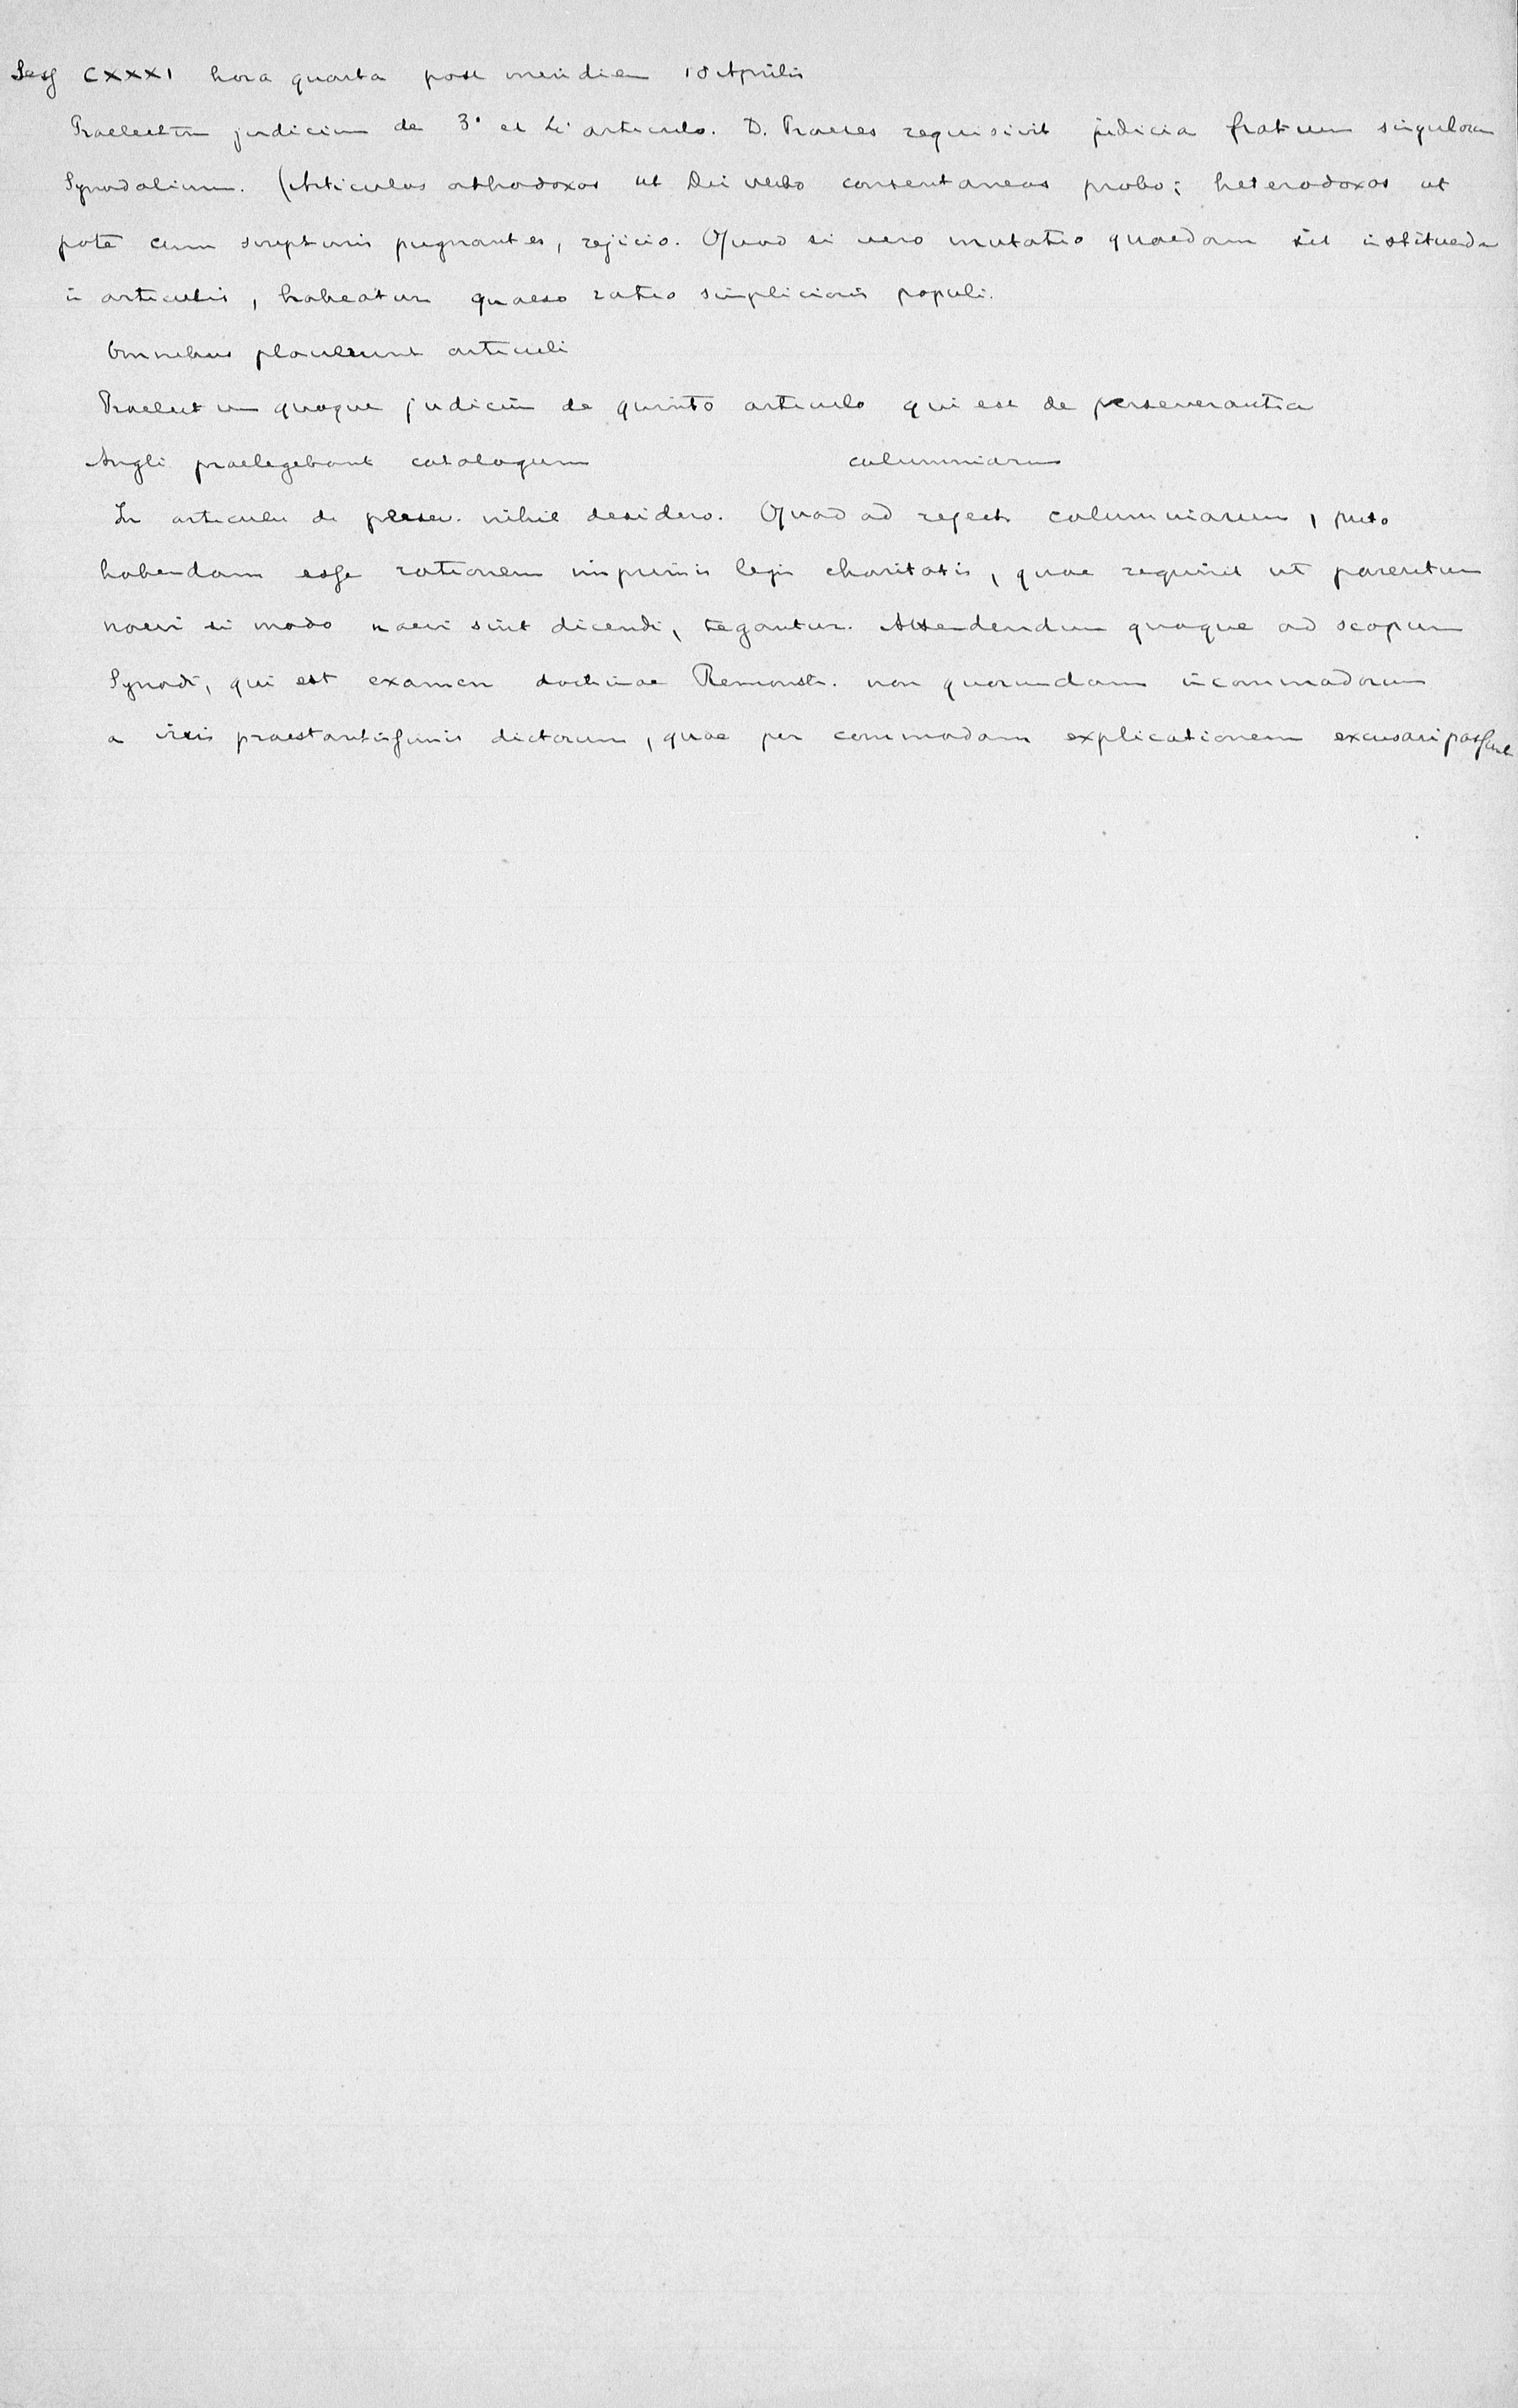 Sess CXXXI hora quarta post meridiem 18 Aprilis
Praelectum judicium de 3° et 4° articulo. D. Praeses requisivit judicia fratrum singulorum
Synodalium. (Articulos orthodoxos ut Dei verbo consentaneos probo; heterodoxos ut
pote cum scripturis pugnantes, rejicio. Quod si vero mutatio quaedam sit instituenda
in articulis, habeatur quaeso ratio simplicioris populi.
Omnibus placuerunt articuli
Praelectum quoque judicium de quinto articulo qui est de perseverantia
Angli praelegebant catalogum calumniarum
In articulo de persev. nihil desidero. Quod ad reject. calumniarum, puto
habendam esse rationem imprimis legis charitatis, quae requirit ut parentum
naevi si modo naevi sint dicendi, tegantur. Attendendum quoque ad scopum
Synodi, qui est examen doctrinae Remonstr. non quorundam incommodorum
a viris praestantissimis dictorum, quae per commodam explicationem excusari possunt